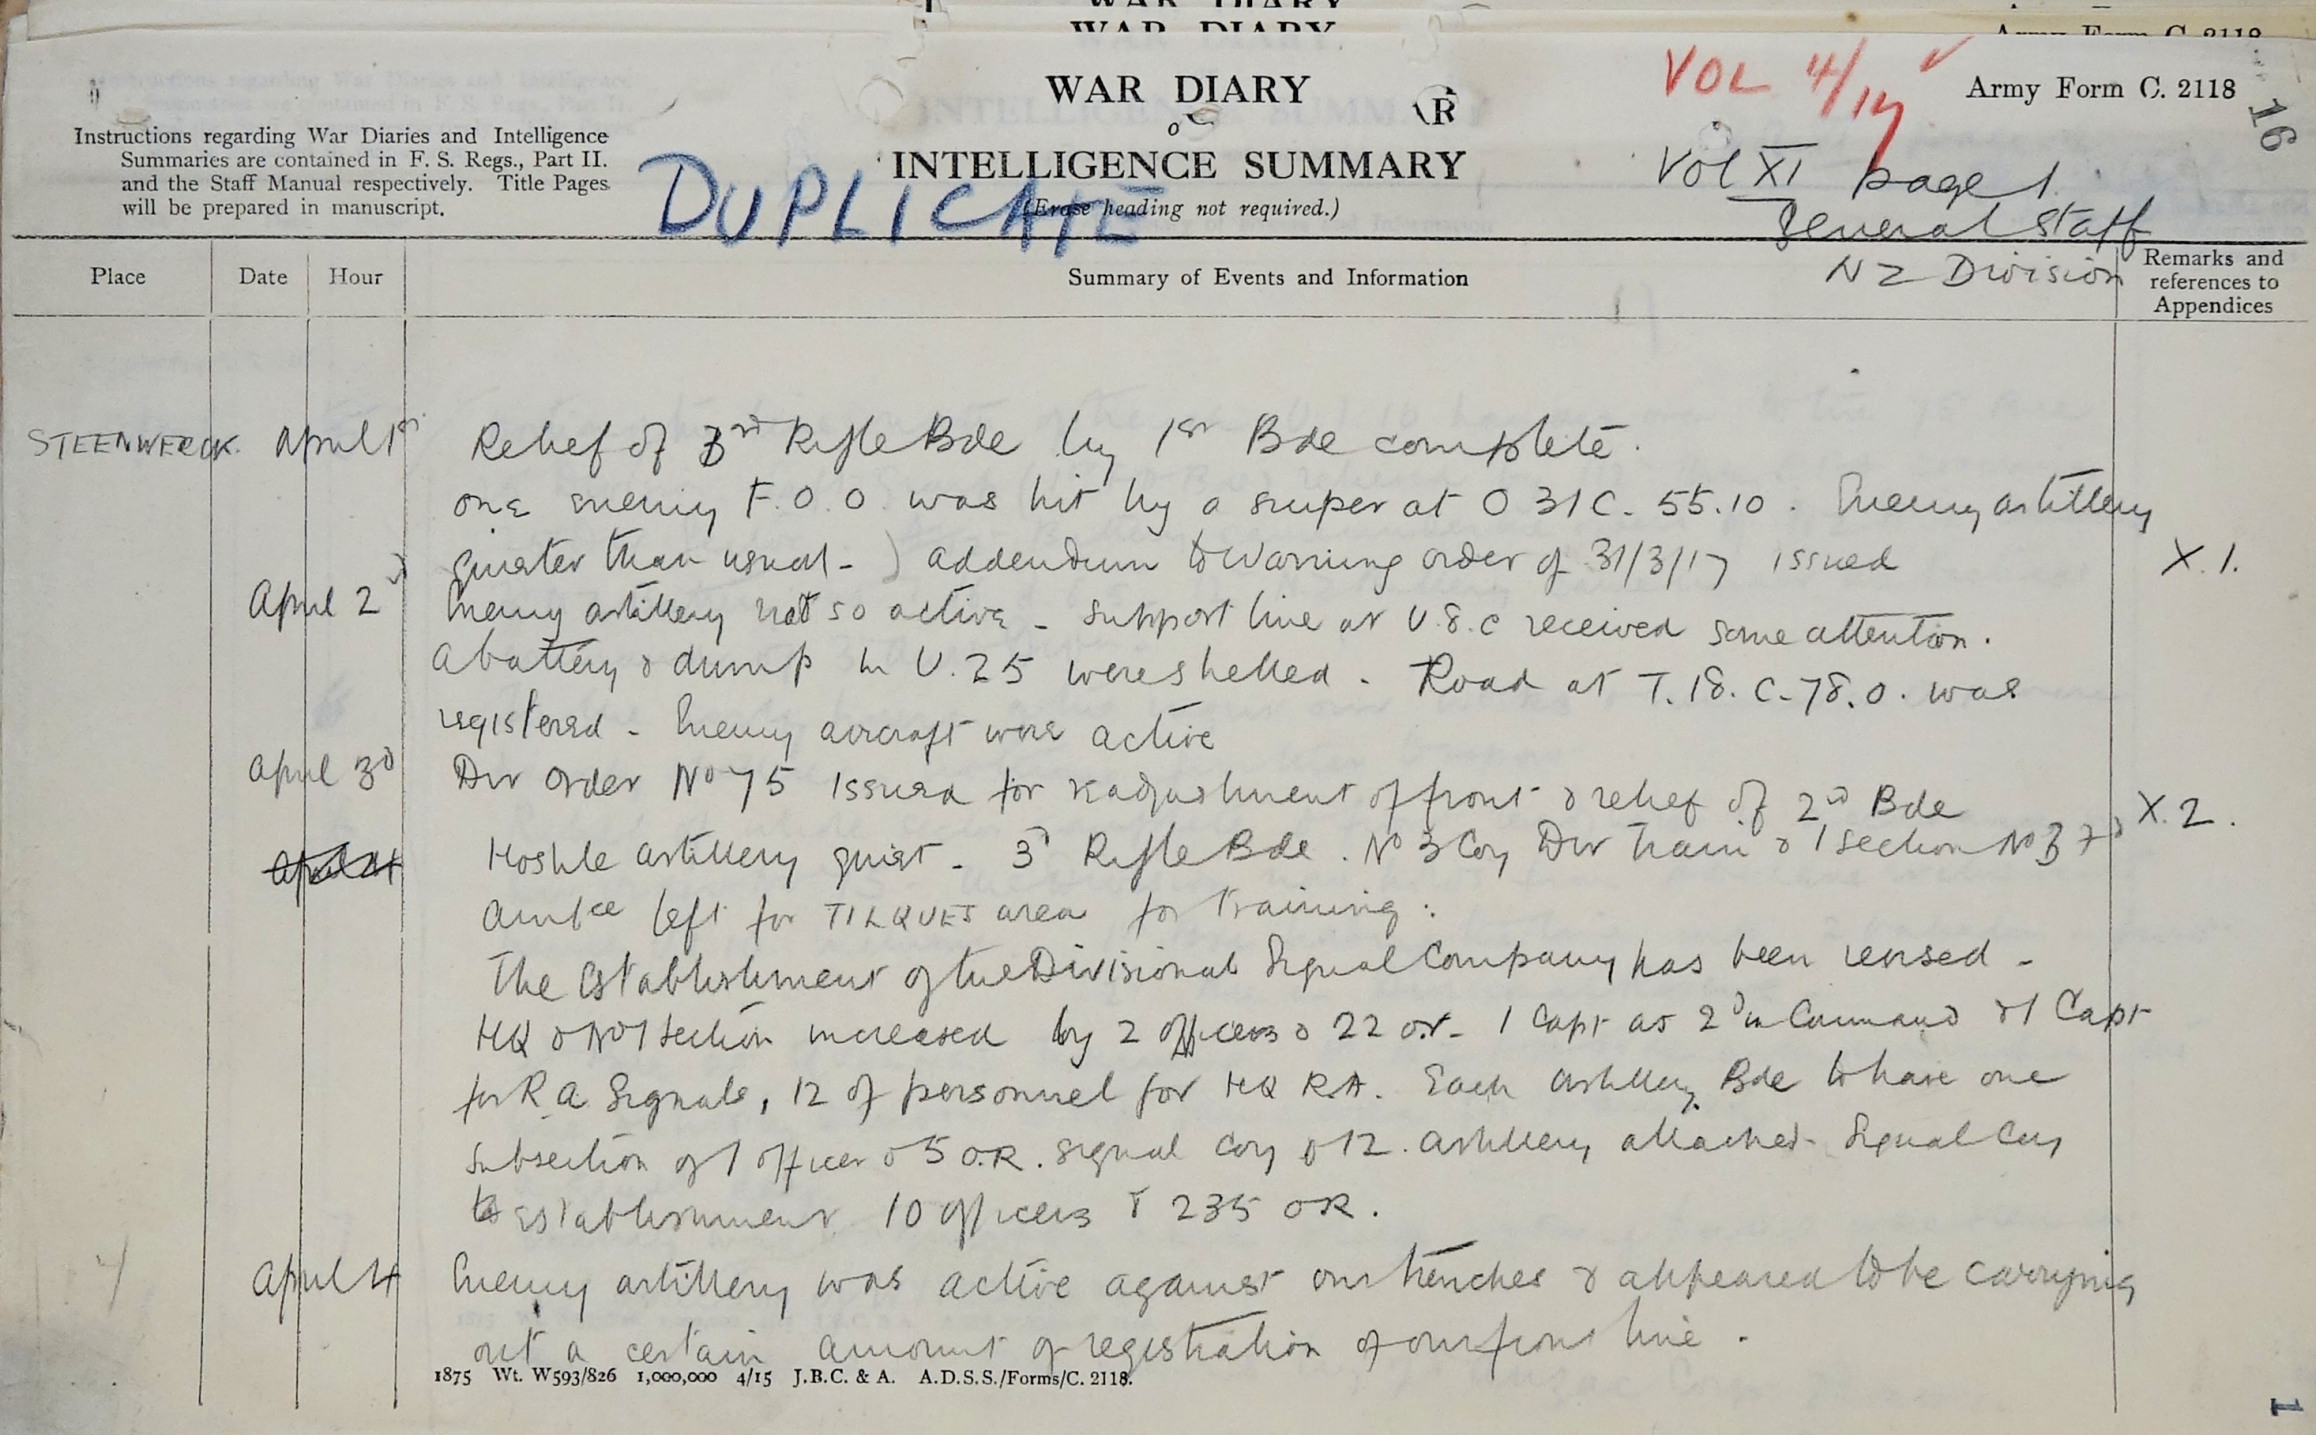 WAR DIARY
WAR DIARY
Army Form C. 2118
WAR DIARY
INTELLIGENCE SUMMARY
(Erase heading not required.)
DUPLICATE
VOL 4/17
Army Form C. 2118
16
Vol XI page 1.
General Staff
NZ Division
Instructions regarding War Diaries and Intelligence
Summaries are contained in F. S. Regs., Part II.
and the Staff Manual respectively. Title Pages
will be prepared in manuscript.
Place Date Hour Summary of Events and Information Remarks and references to Appendices
STEENWERCK. April 1st Relief of 3rd Rifle Bde by 1st Bde complete.
one enemy F.O.O. was hit by a sniper at O 31 C. 55.10. Enemy artillery
greater than usual - ) addendum to Warning order of 31/3/17 issued X.1.
April 2nd Enemy artillery not so active - Support line at U.8.c received some attention.
A battery & dump in U.25 were shelled. Road at T.18.C.78.0. was
registered - Enemy aircraft were active
April 3d Div Order No 75 issued for readjustment of front & relief of 2nd Bde X.2.
April 4 Hostile artillery quiet - 3d Rifle Bde. No 3 Coy Div Train & 1 Section No 3 Fd
Ambce left for TILQUES area for training.
The Establishment of the Divisional Signal Company has been revised -
HQ & No 1 Section increased by 2 officers & 22 o.r. 1 Capt as 2d in Command & 1 Capt
for R.A. Signals, 12 of personnel for HQ RA. Each artillery Bde to have one
subsection of 1 officer & 5 O.R. signal Coy & 12 artillery attached - Signal Coy
establishment 10 officers & 235 OR.
April 4 Enemy artillery was active against our trenches & appeared to be carrying
out a certain amount of registration of our front line.
1875 Wt. W593/826 1,000,000 4/15 J.B.C. & A. A.D.S.S./Forms/C. 2118.
1